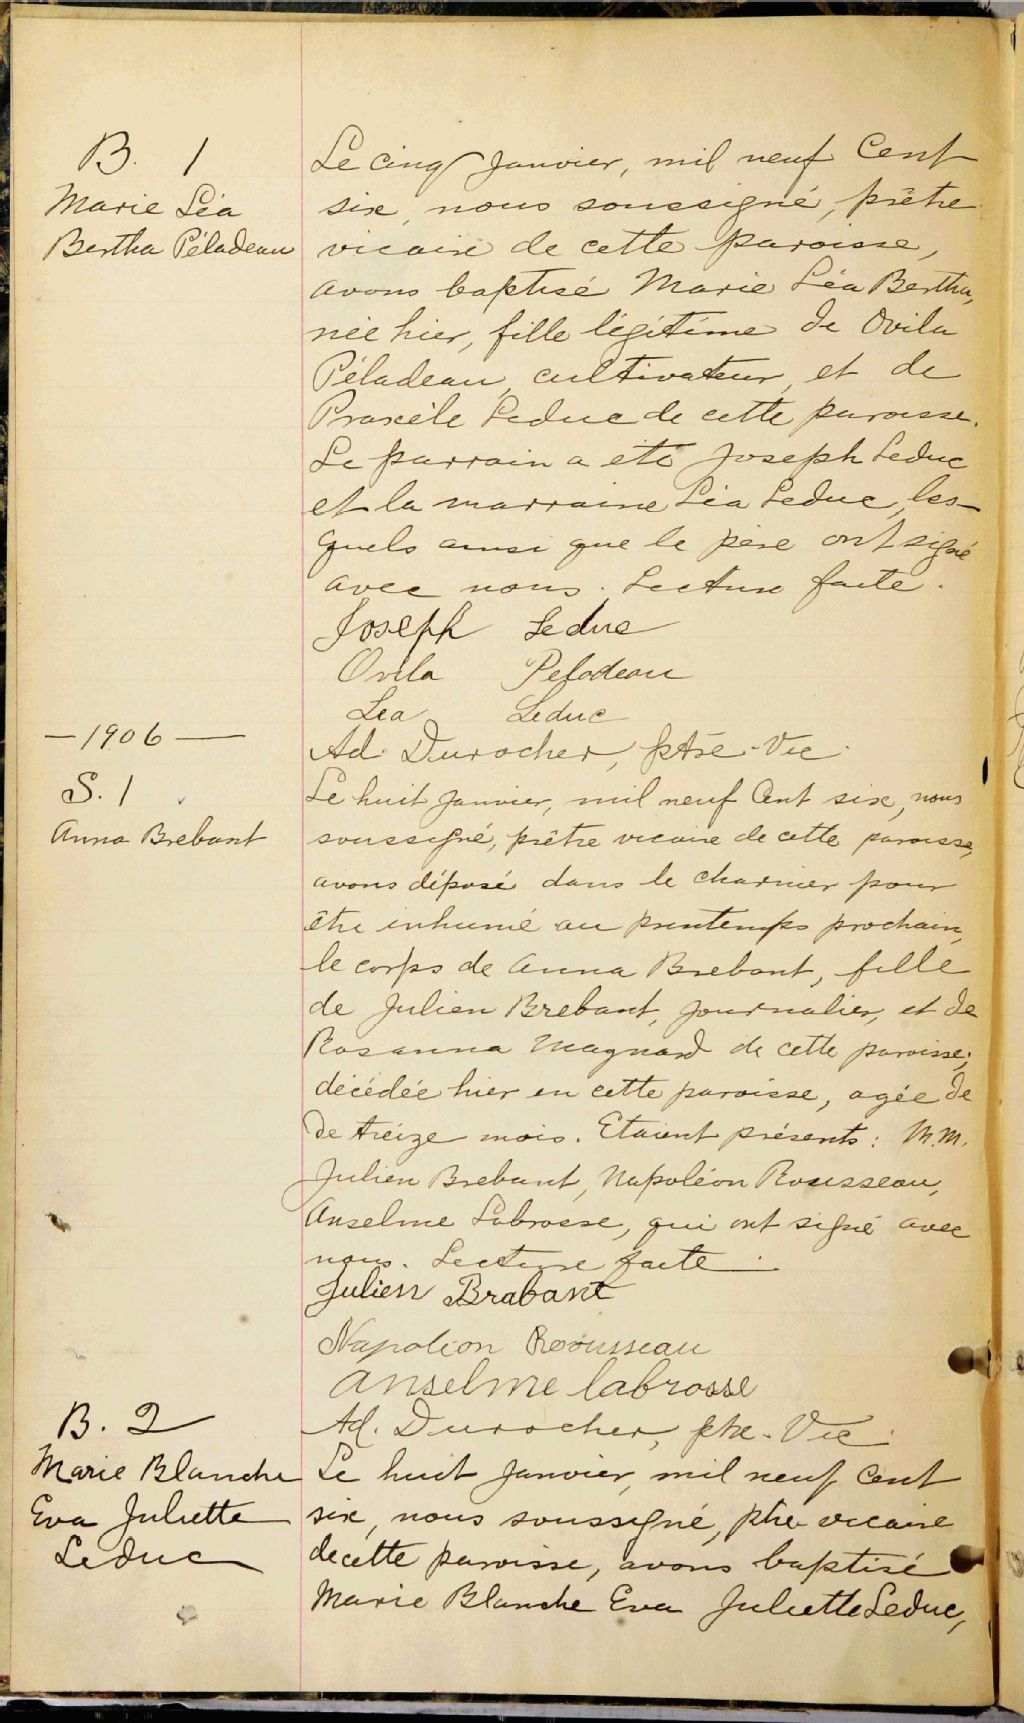 B. 1
Marie Léa
Bertha Péladeau
Le cinq Janvier, mil neuf Cent
six, nous soussigné, prêtre
vicaire de cette paroisse,
avons baptisé Marie Léa Bertha,
née hier, fille légitime de Ovila
Péladeau, cultivateur, et de
Praxèle Leduc de cette paroisse.
Le parrain a été Joseph Leduc
et la marraine Léa Leduc, les-
quels ainsi que le père ont signé
avec nous. Lecture faite.
Joseph Leduc
Ovila Peladeau
Lea Leduc
Ad. Durocher, ptre-Vic.
— 1906 —
S. 1
Anna Brebant
Le huit Janvier, mil neuf Cent six, nous
soussigné, prêtre vicaire de cette paroisse,
avons déposé dans le charnier pour
être inhumé au printemps prochain,
le corps de Anna Brebant, fille
de Julien Brebant, journalier, et de
Rosanna Magnard de cette paroisse,
décédée hier en cette paroisse, agée de
de treize mois. Etaient présents: M.M.
Julien Brebant, Napoléon Rousseau,
Anselme Labrosse, qui ont signé avec
nous. Lecture faite.
Julien Brabant
Napoleon Roousseau
Anselme labrosse
Ad. Durocher, ptre-Vic.
B. 2
Marie Blanche
Eva Juliette
Leduc
Le huit Janvier, mil neuf Cent
six, nous soussigné, ptre vicaire
de cette paroisse, avons baptisé
Marie Blanche Eva Juliette Leduc,